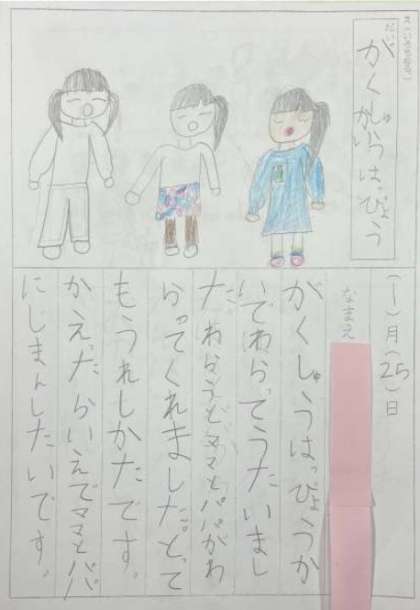 だい
がくしゅうはっぴょう
(1)月(25)日
なまえ
がくしゅうはっぴょうか
いでわらってうたいまし
た。わらうとママとパパがわ
らってくれました。とって
もうれしかたです。
かえったらいえでママとパパ
にじまんしたいです。